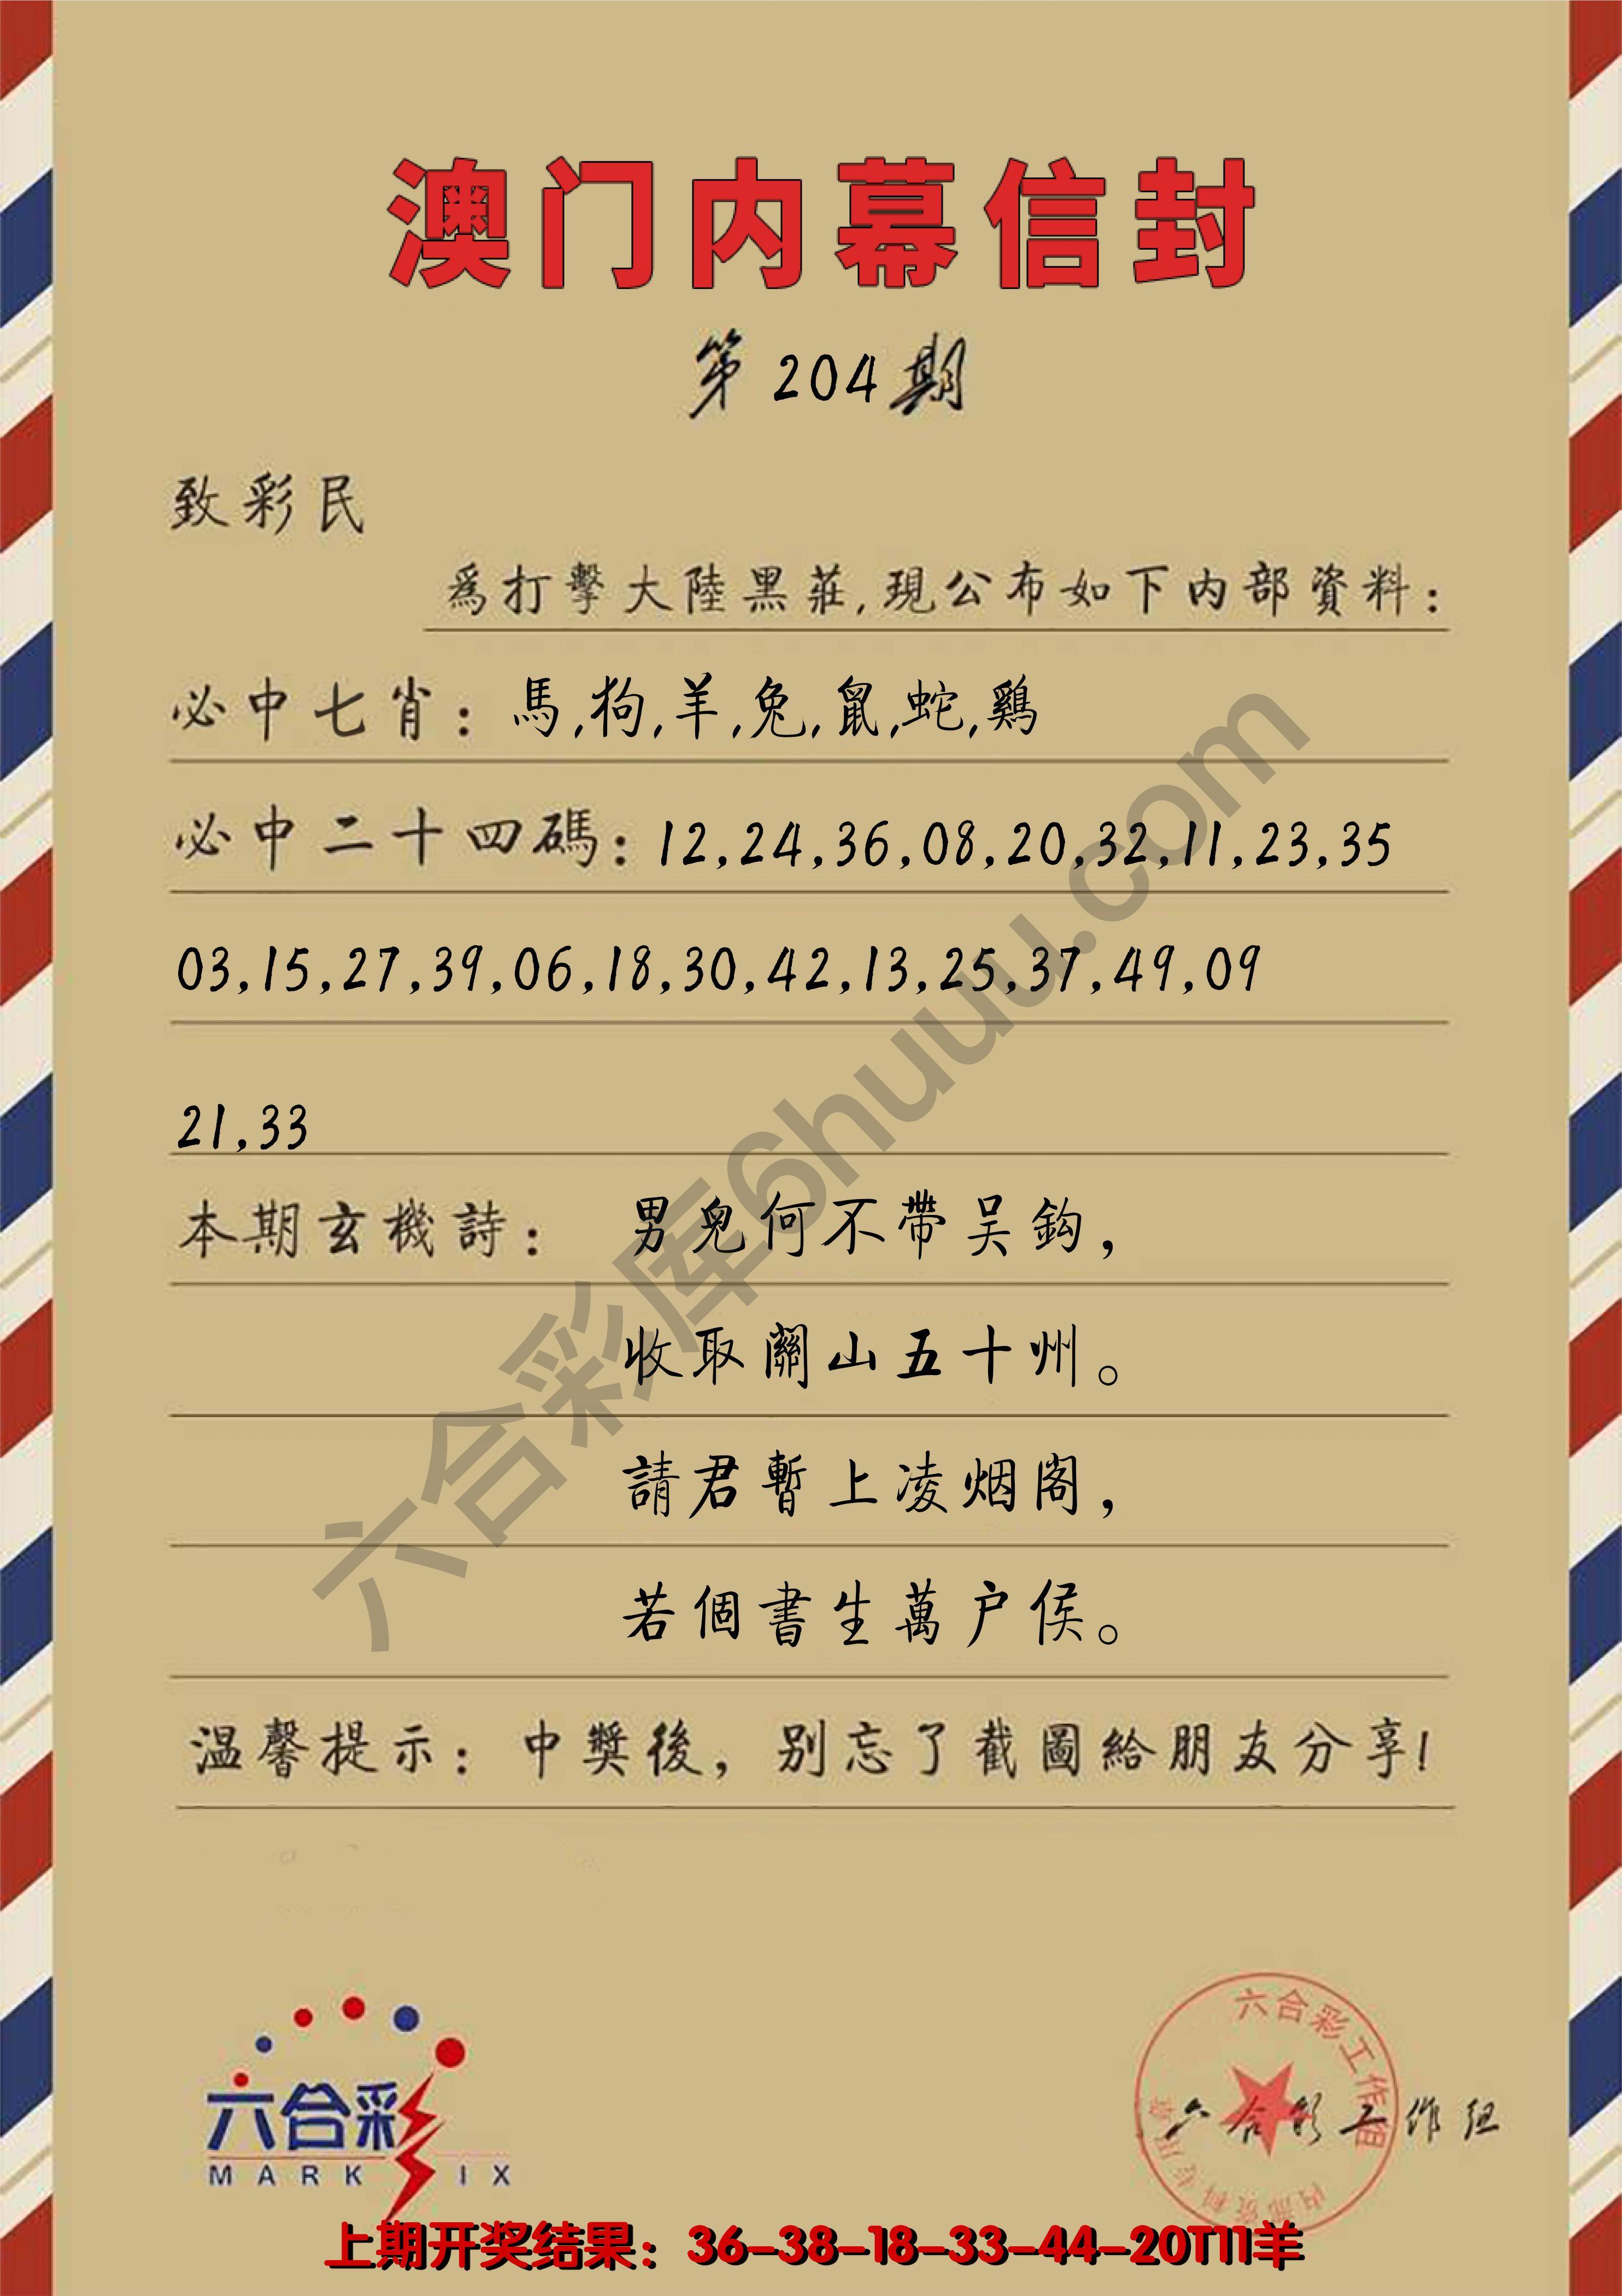 澳门内幕信封
第204期
致彩民
爲打擊大陸黑莊,現公布如下内部資料:
必中七肖:馬,狗,羊,兔,鼠,蛇,鷄
必中二十四碼:12,24,36,08,20,32,11,23,35
03,15,27,39,06,18,30,42,13,25,37,49,09
21,33
本期玄機詩: 男兒何不帶吴鈎,
收取關山五十州。
請君暫上凌烟阁,
若個書生萬户侯。
温馨提示:中獎後,别忘了截圖給朋友分享!
六合彩库6huuu.com
六合彩
MARK SIX
六合彩工作组
内部资料专用章
六合彩工作组
上期开奖结果:36-38-18-33-44-20T11羊